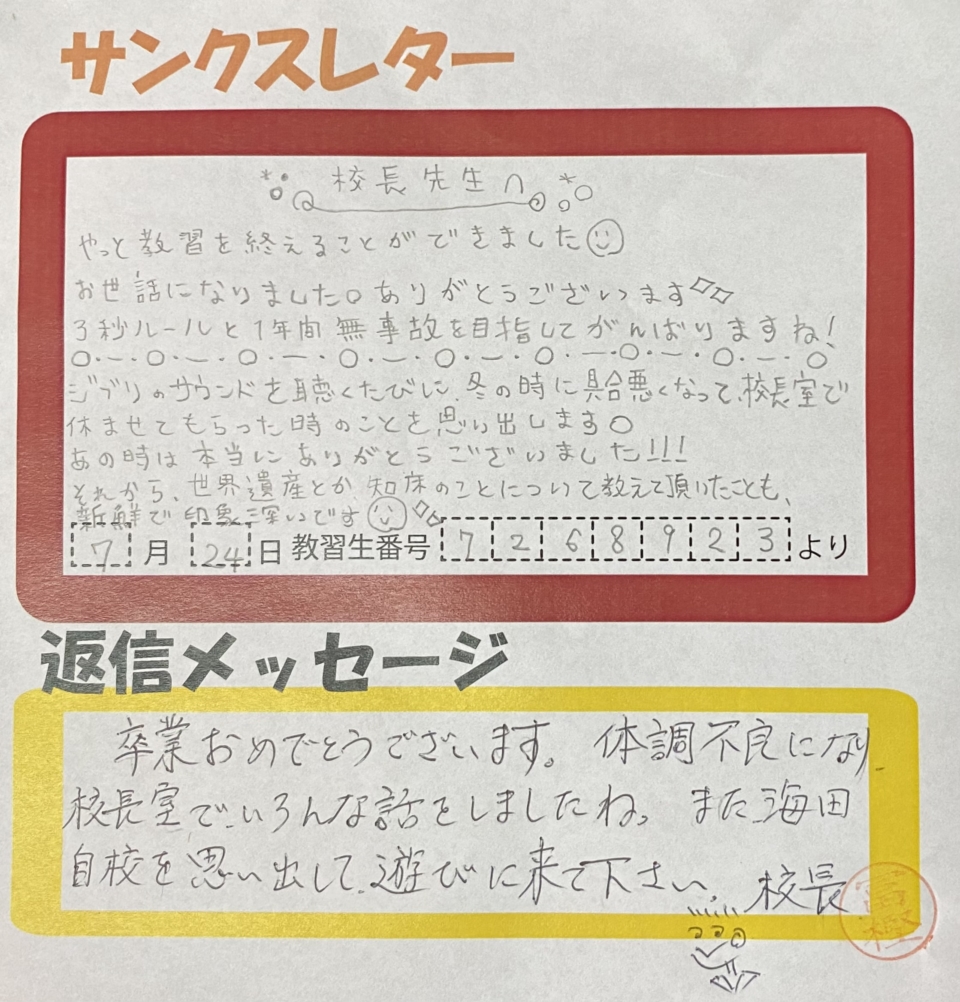 サンクスレター
校長先生へ
やっと教習を終えることができました
お世話になりました。ありがとうございます
3秒ルールと1年間無事故を目指してがんばりますね!
ジブリのサウンドを聴くたびに、冬の時に具合悪くなって、校長室で
休ませてもらった時のことを思い出します。
あの時は本当にありがとうございました!!!
それから、世界遺産とか知床のことについて教えて頂いたことも、
新鮮で印象深いです
7月24日 教習生番号 7268923より
返信メッセージ
卒業おめでとうございます。体調不良になり
校長室でいろんな話をしましたね。また海田
自校を思い出して遊びに来て下さい。校長
富樫